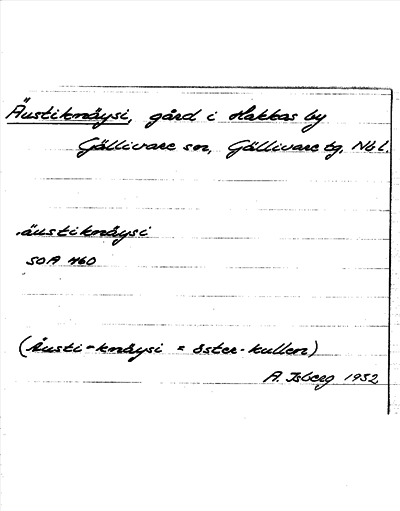 Äustiknäysi, gård i Hakkas by
Gällivare sn, Gällivare tg. Nbl.
äustiknäysi
SOA 460
(Äusti-knäysi = öster-kullen)
A. Isberg 1932